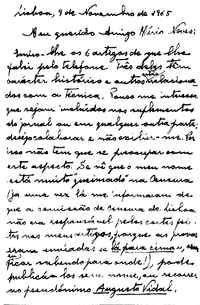 Lisboa, 9 de Novembro de 1965
Meu querido Amigo Mário Neves:
Envio-lhe os 6 artigos de que lhe
falei pelo telefone. Três deles têm
carácter histórico e outros relaciona
dos com a técnica. Pouco me interessa
que sejam incluídos nos suplementos
do jornal ou em qualquer outra parte.
desejo colaborar e não exibir-me. Por
isso não tem que se preocupar com
este aspecto. Se vê que o meu nome
está muito queimado na Censura
(já uma vez lá me informaram de
que a comissão de censura de Lisboa
não era responsável pelos cortes fei-
tos nos meus artigos, porque as provas
eram enviadas "lá para cima",
ficar sabendo para onde!), pode
publicá-los sem nome, ou recorrer
ao pseudónimo Augusto Vidal.